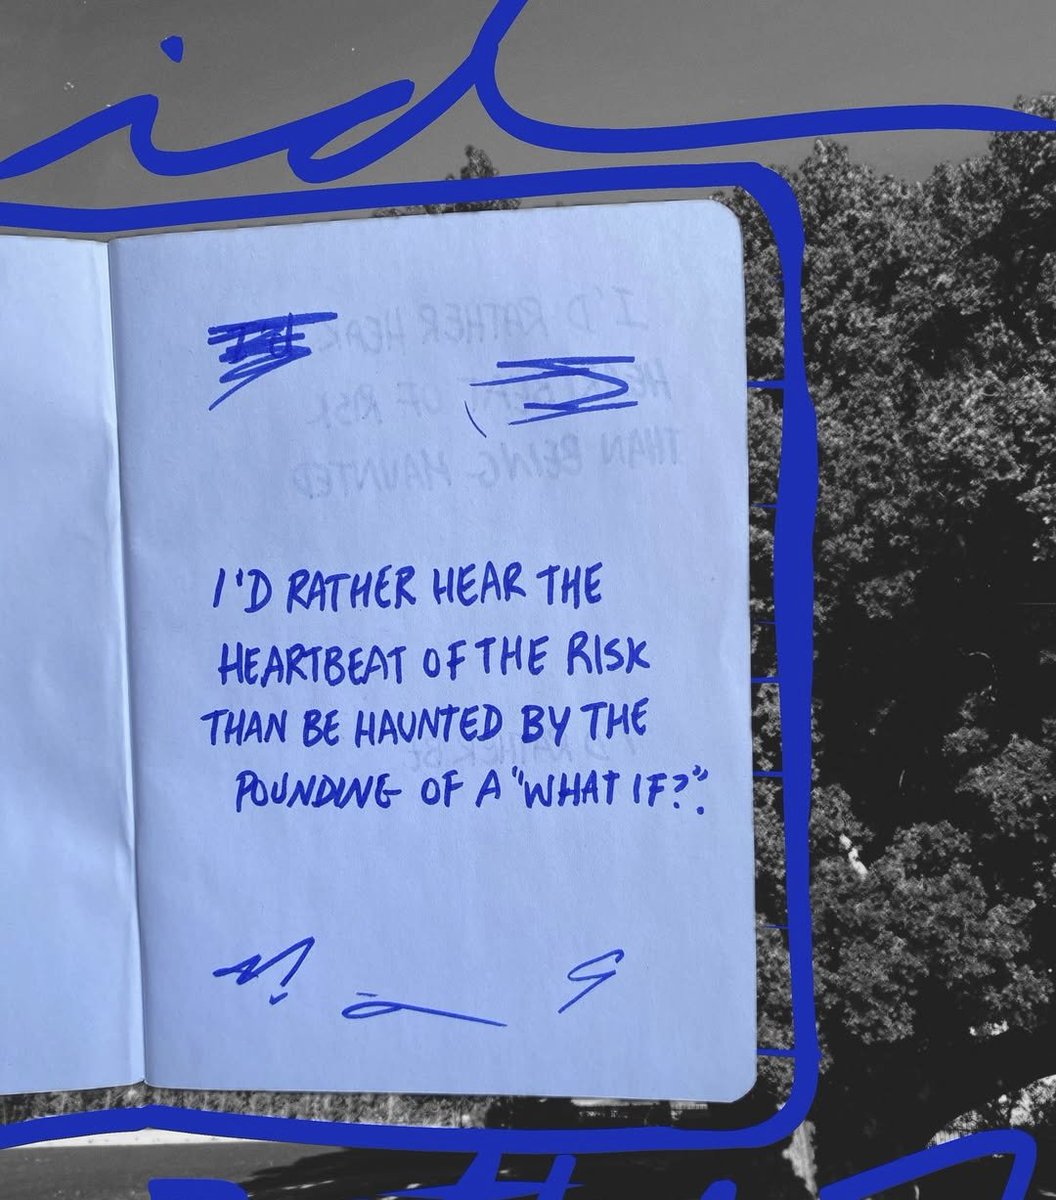 id
I'D RATHER HEAR THE
HEARTBEAT OF THE RISK
THAN BE HAUNTED BY THE
POUNDING OF A "WHAT IF?".